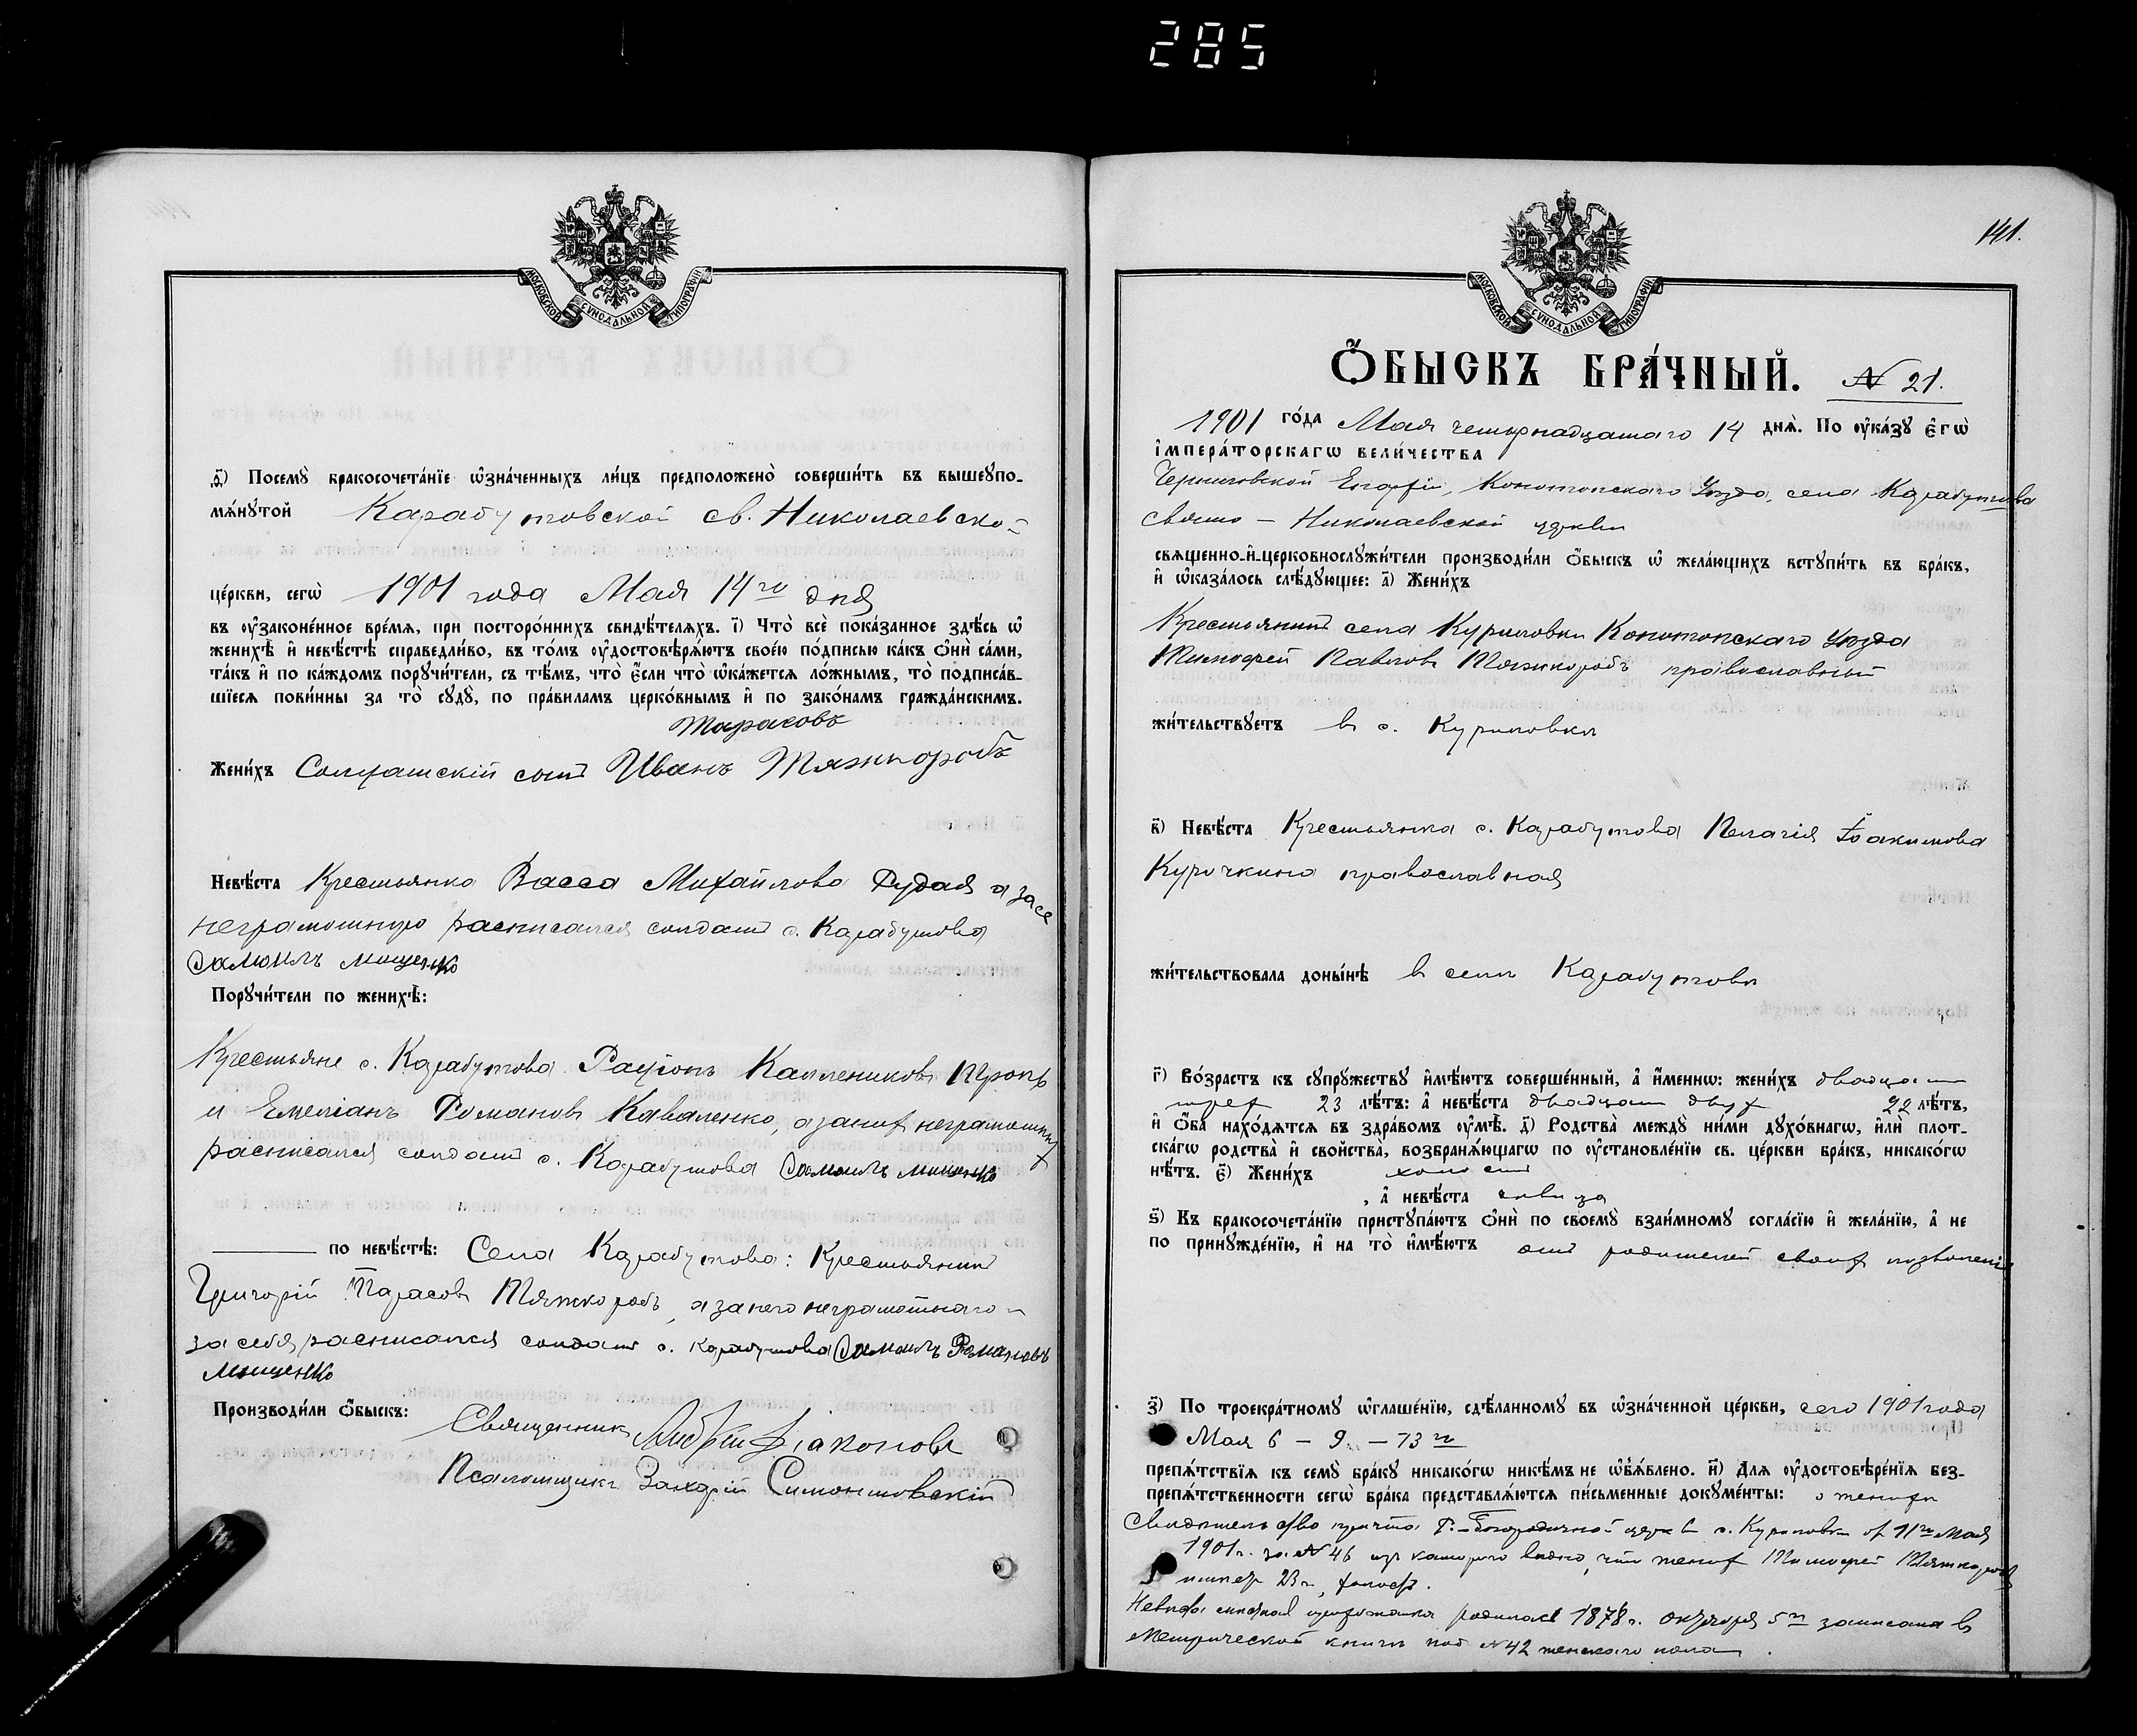 285
МОСКОВСКОЙ СѴНОДАЛЬНОЙ ТИПОГРАФІИ
ѳ҃) Посемꙋ̀ бракосочета́нїе ѡ҆зна́ченныхъ ли́цъ предположено̀ соверши́ть въ вышеꙋпо-
мѧ́нꙋтой Карабутовской св. Николаевской
це́ркви, сегѡ̀ 1901 года Мая 14го дня
въ ᲂу҆законе́нное вре́мѧ, при посторо́ннихъ свидѣ́телѧхъ. і҃) Что̀ всѐ пока́занное здѣ́сь ѡ҆
женихѣ̀ и҆ невѣ́стѣ справедли́во, въ то́мъ ᲂу҆достовѣрѧ́ютъ свое́ю по́дписью ка́къ ѻ҆нѝ са́ми,
та́къ и҆ по ка́ждомъ порꙋчи́тели, съ тѣ́мъ, что̀ є҆́сли что̀ ѡ҆ка́жетсѧ ло́жнымъ, то̀ подписа́в-
шїесѧ пови́нны за то̀ сꙋдꙋ̀, по пра́виламъ церко́внымъ и҆ по зако́намъ гражда́нскимъ.
Тарасовъ
Жени́хъ Солдатскій сынъ Иванъ Тяжкоробъ
Невѣ́ста Крестьянка Васса Михайлова Рудая а за се
неграмотную расписался солдатъ с. Карабутова
Самоилъ Мищенко
Порꙋчи́тели по женихѣ̀:
Крестьяне с. Карабутова Родіонъ Каллениковъ
и Емеліанъ Романовъ Коваленко, а за них неграмотных
расписался солдатъ с. Карабутова Самоилъ Мищенко
по невѣ́стѣ: Села Карабутова: Крестьянинъ
Григорій Тарасовъ Тяжкоробъ, а за него неграмотнаго и
за себя расписался солдатъ с. Карабутова Самоилъ Романовъ
Мищенко
Производи́ли ѻ҆́быскъ:
Священникъ Андрей Діаконовъ
Псаломщикъ Захарій Симонтовскій
141.
МОСКОВСКОЙ СѴНОДАЛЬНОЙ ТИПОГРАФІИ
Ѻ҆́БЫСКЪ БРА́ЧНЫЙ. № 21.
1901 го́да Мая четырнадцатаго 14 днѧ̀. По ᲂу҆ка́зꙋ є҆гѡ̀
і҆мпера́торскагѡ вели́чества
Черниговской Епархіи, Конотопскаго Уѣзда, села Карабутова
Свято – Николаевской церкви
свѧщенно-и҆-церковнослꙋжи́тели производи́ли ѻ҆́быскъ ѡ҆ жела́ющихъ встꙋпи́ть въ бра́къ,
и҆ ѡ҆каза́лось слѣ́дꙋющее: а҃) Жени́хъ
Крестьянинъ села Куриловки Конотопскаго Уѣзда
Тимофей Павловъ Тяжкоробъ православный
жи́тельствꙋетъ в с. Куриловки
в҃) Невѣ́ста Крестьянка с. Карабутова Пелагія Іоакимова
Курочкина православная
жи́тельствовала доны́нѣ в селѣ Карабутовѣ
г҃) Во́зрастъ къ сꙋпрꙋ́жествꙋ и҆мѣ́ютъ соверше́нный, а҆ и҆́меннѡ: жени́хъ двадцати
трех 23 лѣ́тъ: а҆ невѣ́ста двадцати двух 22 лѣ́тъ,
и҆ ѻ҆́ба нахо́дѧтсѧ въ здра́вомъ ᲂу҆мѣ̀. д҃) Родства̀ междꙋ̀ ни́ми дꙋхо́внагѡ, и҆лѝ плот-
ска́гѡ родства̀ и҆ сво́йства̀, возбранѧ́ющагѡ по ᲂу҆становле́нїю св. це́ркви бра́къ, никако́гѡ
нѣ́тъ. є҃) Жени́хъ холостъ
, а҆ невѣ́ста девица
ѕ҃) Къ бракосочета́нїю пристꙋпа́ютъ ѻ҆нѝ по своемꙋ̀ взаи́мномꙋ согла́сїю и҆ жела́нїю, а҆ не
по принꙋжде́нїю, и҆ на то̀ и҆мѣ́ютъ отъ родителей своих позволеніе
з҃) По троекра́тномꙋ ѡ҆глаше́нїю, сдѣ́ланномꙋ въ ѡ҆зна́ченной це́ркви, сего 1901 года
Мая 6 – 9 – 13го
препѧ́тствїѧ къ семꙋ̀ бра́кꙋ никако́гѡ никѣ́мъ не ѡ҆б̾ѧ́влено. и҃) Длѧ ᲂу҆достовѣре́нїѧ без-
препѧ́тственности сегѡ̀ бра́ка представлѧ́ютсѧ пи́сьменные докꙋме́нты: о женихѣ
Свидѣтельство причта Р.-Богородичной церкви с. Куриловки от 11го Мая
1901 г. за № 46 из котораго видно, что жених Тимофей Тяжкоробъ
имѣет 23 г., холост.
Невѣста мѣстная прихожанка родилась 1878 г. октября 5го записана в
Метрической книгѣ под № 42 женскаго пола.